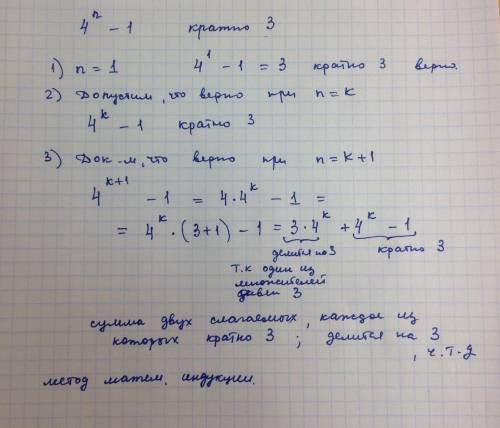 4ⁿ - 1 кратно 3
1) n = 1 4¹ - 1 = 3 кратно 3 верно.
2) Допустим, что верно при n = k
4ᵏ - 1 кратно 3
3) Док-м, что верно при n = k + 1
4ᵏ⁺¹ - 1 = 4·4ᵏ - 1 =
= 4ᵏ·(3+1) - 1 = 3·4ᵏ + 4ᵏ - 1
делится на 3 кратно 3
т.к один из
множителей
равен 3
сумма двух слагаемых, каждое из
которых кратно 3 ; делится на 3
, ч.т.д
метод матем. индукции.